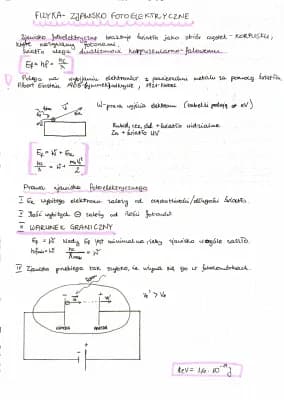 FIZYKA - ZJAWISKO FOTOELEKTRYCZNE
Zjawisko fotoelektryczne traktuje światło jako strumień cząstek - KORPUSKUŁ,
które nazywamy fotonami.
Światło ulega dualizmowi korpuskularno-falowemu.
Ef = hν = hc/λ
Polega na wybijaniu elektronów z powierzchni metalu za pomocą światła.
Albert Einstein 1905 1921 Nobel
W - praca wyjścia elektronu (tabelki podają w eV)
światło widzialne
Zn + światło UV
Ef = W + Ek
hc/λ = W + mV²/2
Prawa zjawiska fotoelektrycznego
I Ek wybitego elektronu zależy od częstotliwości/długości światła.
II Ilość wybitych ⊖ zależy od ilości fotonów.
III WARUNEK GRANICZNY
Ef = W Kiedy Ef jest minimalna, żeby zjawisko w ogóle zaszło.
hνmin = W hc/λmax = W
IV Zjawisko przebiega tak szybko, że używa się go w fotokomórkach.
KATODA
ANODA
1eV = 1,6 · 10⁻¹⁹ J